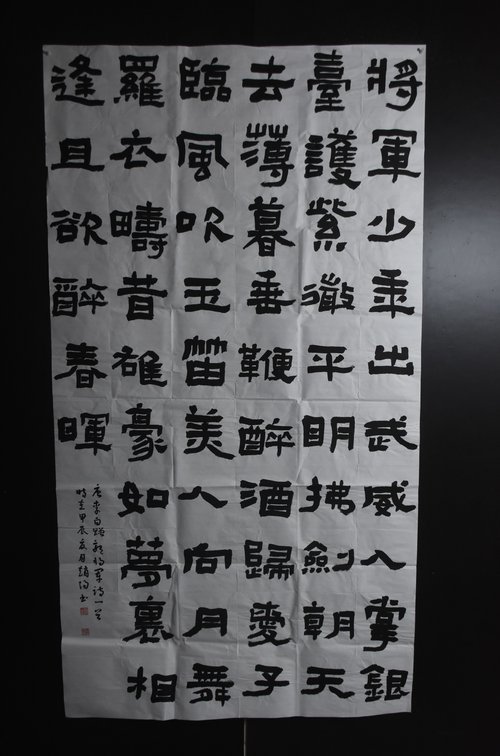 將軍少年出武威入掌銀
臺護紫微平明拂劍朝天
去薄暮垂鞭醉酒歸愛子
臨風吹玉笛美人向月舞
羅衣疇昔雄豪如夢裏相
逢且欲醉春暉
唐李白贈郭將軍詩一首
時在甲辰夏月書